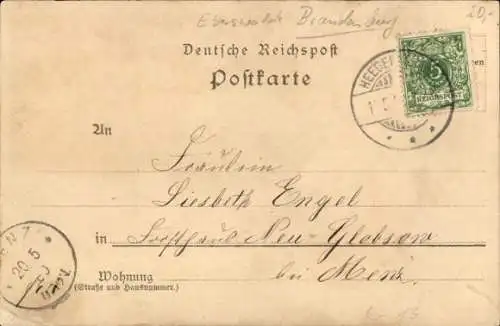 Eberswalde Brandenburg
20,-
Deutsche Reichspost
Postkarte
HEEGER
5
REICHSPOST
An
Fräulein
Liesbeth Engel
in Forsthaus Neu-Globsow
bei Menz
Wohnung
(Straße und Hausnummer.)
ENZ
20 5